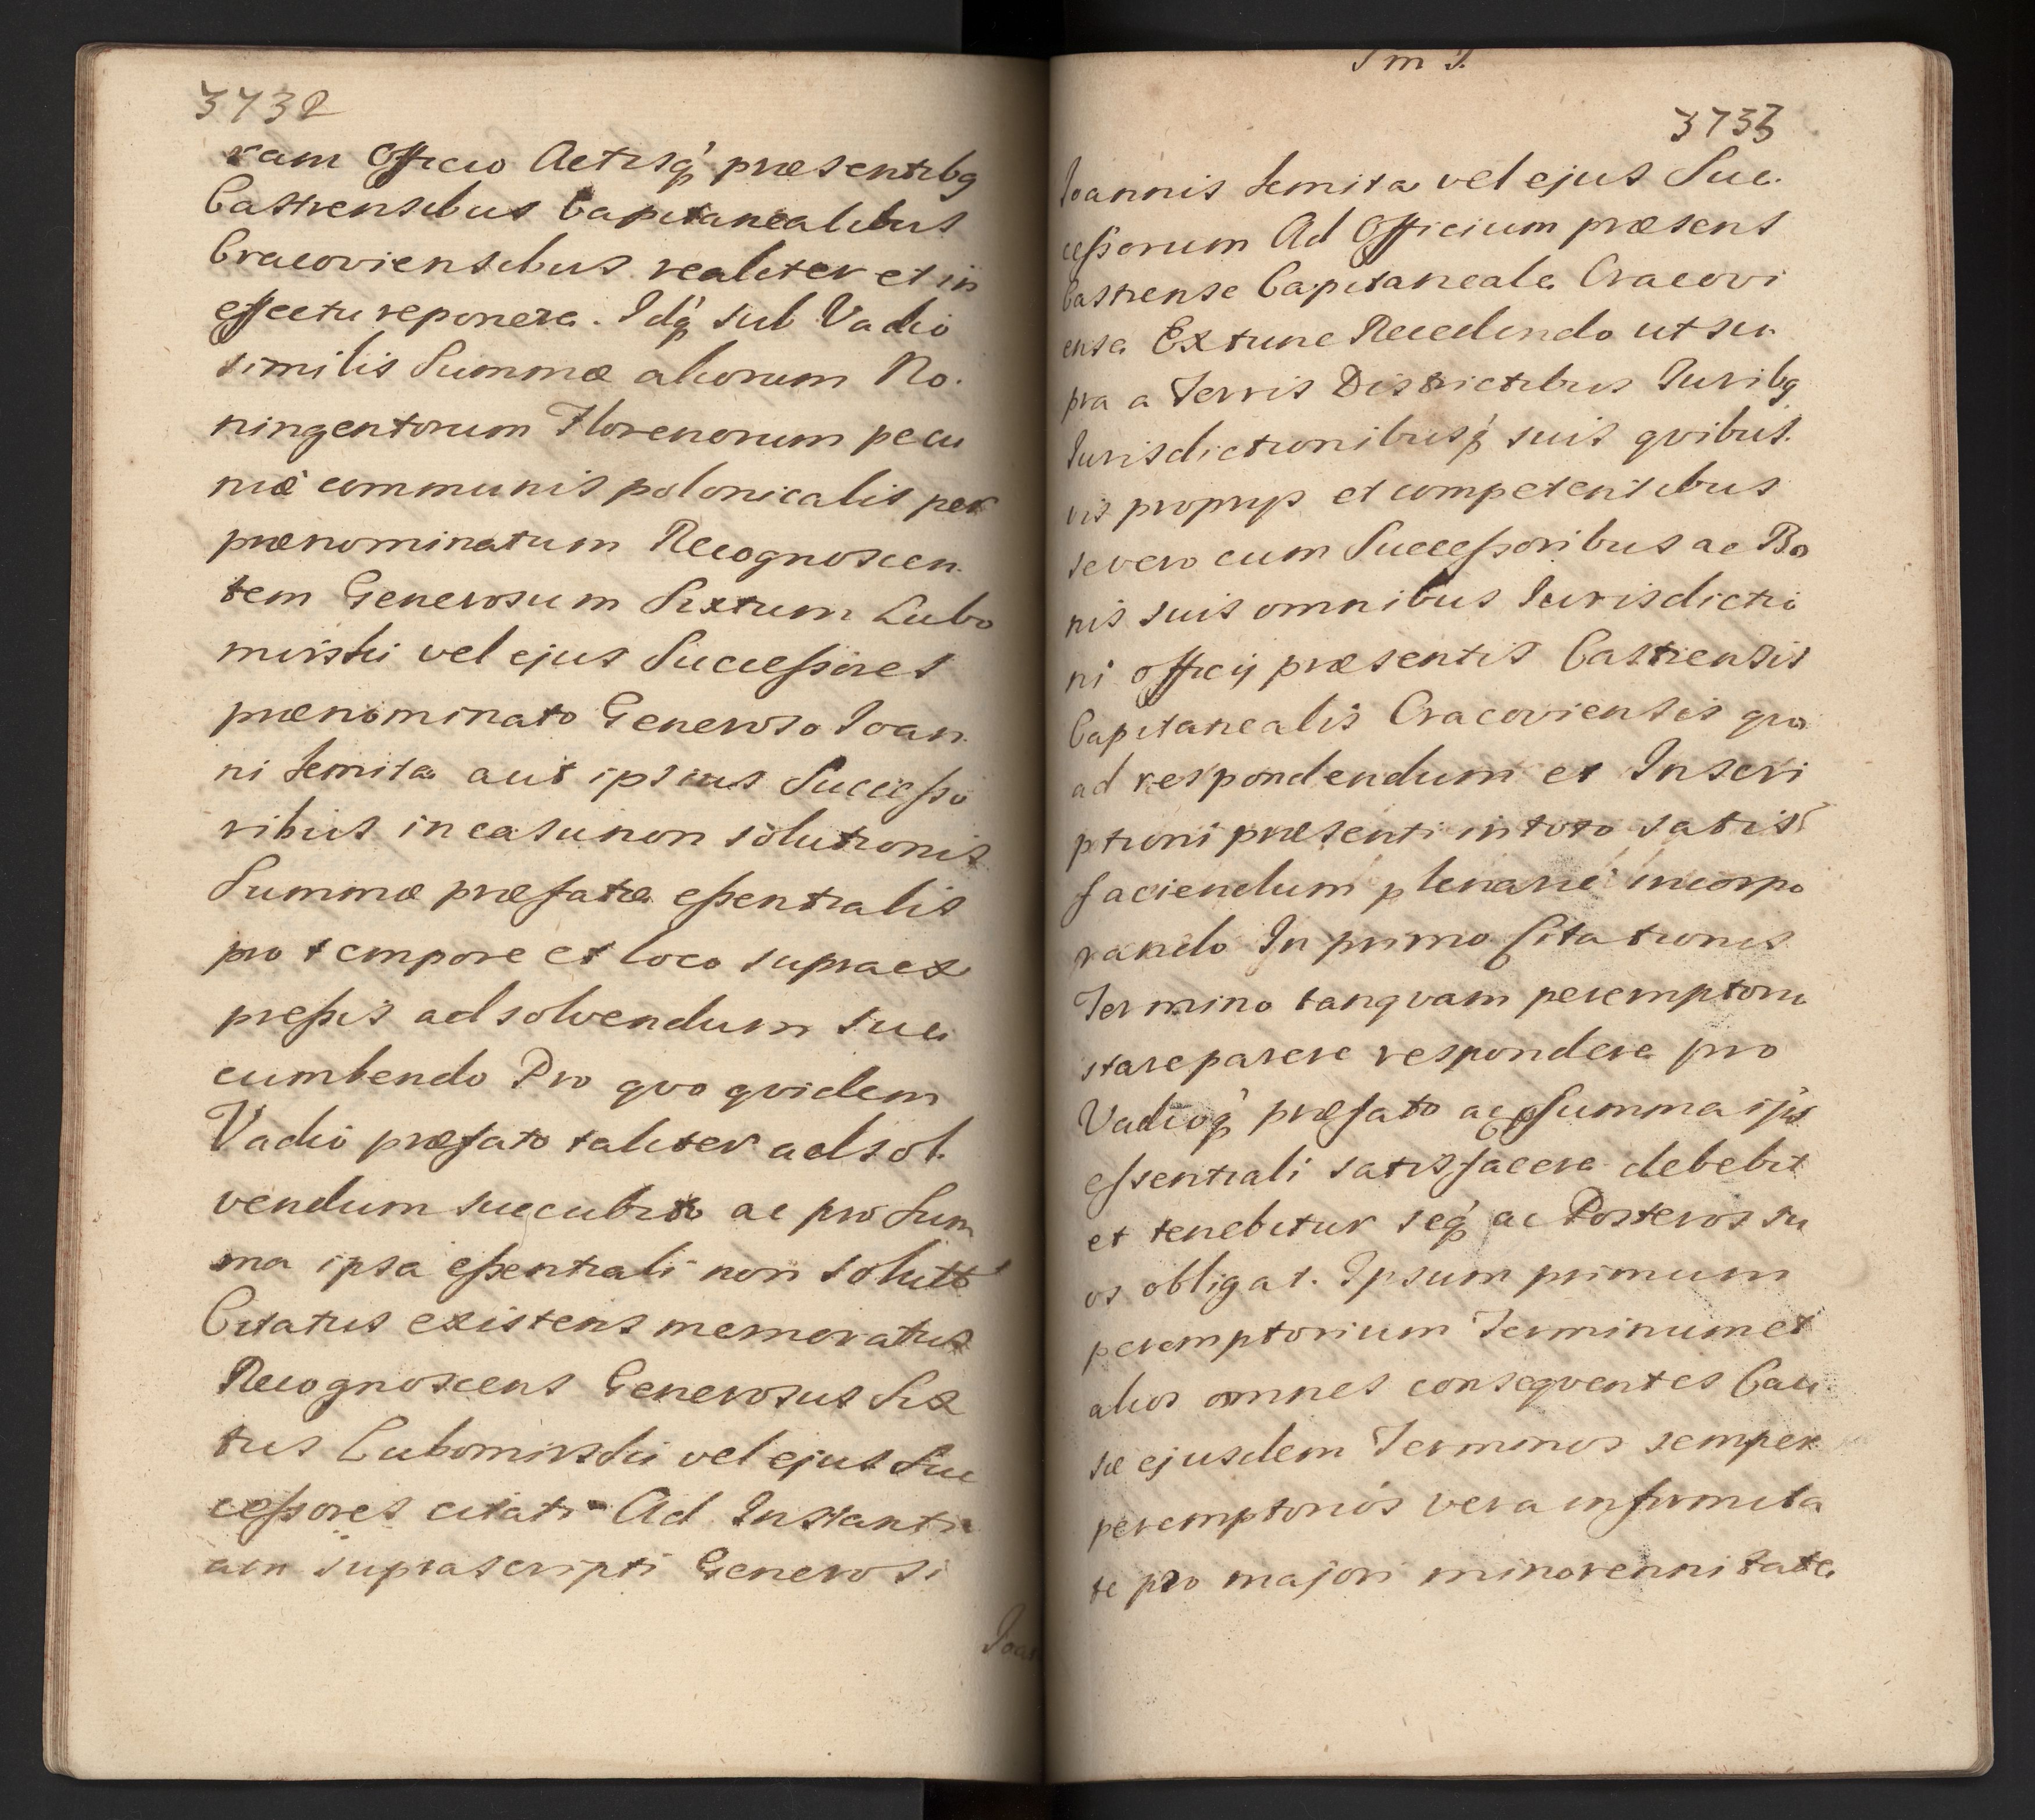 3732
ram Officio Actisq́ præsentibq
Castrensibus Capitanealibus
Cracoviensibus realiter et in
effectu reponere. Idq́ sub Vadio
similis Summæ aliorum No.
ningentorum Florenorum pecu
niæ communis polonicalis per
prænominatum Recognoscen
tem Generosum Sixtum Lubo
mirski vel ejus Successores
prænominato Generoso Joan
ni Semita aut ipsius Successo
ribus in casu non solutionis
Summæ præfatæ essentialis
pro tempore et loco supraex
pressis ad solvendum suc
cumbendo Pro quo quidem
Vadio præfato taliter ad sol.
vendum succubito ac pro Sum
ma ipsa essentiali non soluta
Citatus existens memoratus
Recognoscens Generosus Six
tus Lubomirski vel ejus Suc
cessores citati Ad Instanti
am suprascripti Generosi
Joan
3733
Joannis Semita vel ejus Suc.
cessorum Ad Officium præsens
Castrense Capitaneale Cracovi
ense Extunc Recedendo ut su
pra a Terris Districtibus Juribq
Jurisdictionibusq́ suis quibus.
vis proprijs et competentibus
se vero cum Successoribus ac Bo
nis suis omnibus Jurisdictio
ni officij præsentis Castrensis
Capitanealis Cracoviensis quo
ad respondendum et Inscri
ptioni præsenti in toto satis
faciendum plenarie incorpo
rando In primo Citationis
Termino tanquam peremptorio
stare parere respondere pro
Vadioq́ præfato ac Summa ips
essentiali satisfacere debebit
et tenebitur seq́ ac Posteros su
os obligat. Ipsum primum
peremptorium Terminum et
alios omnes consequentes Cau
sæ ejusdem Terminos semper
peremptorios vera infirmita
te pro majori minorennitate